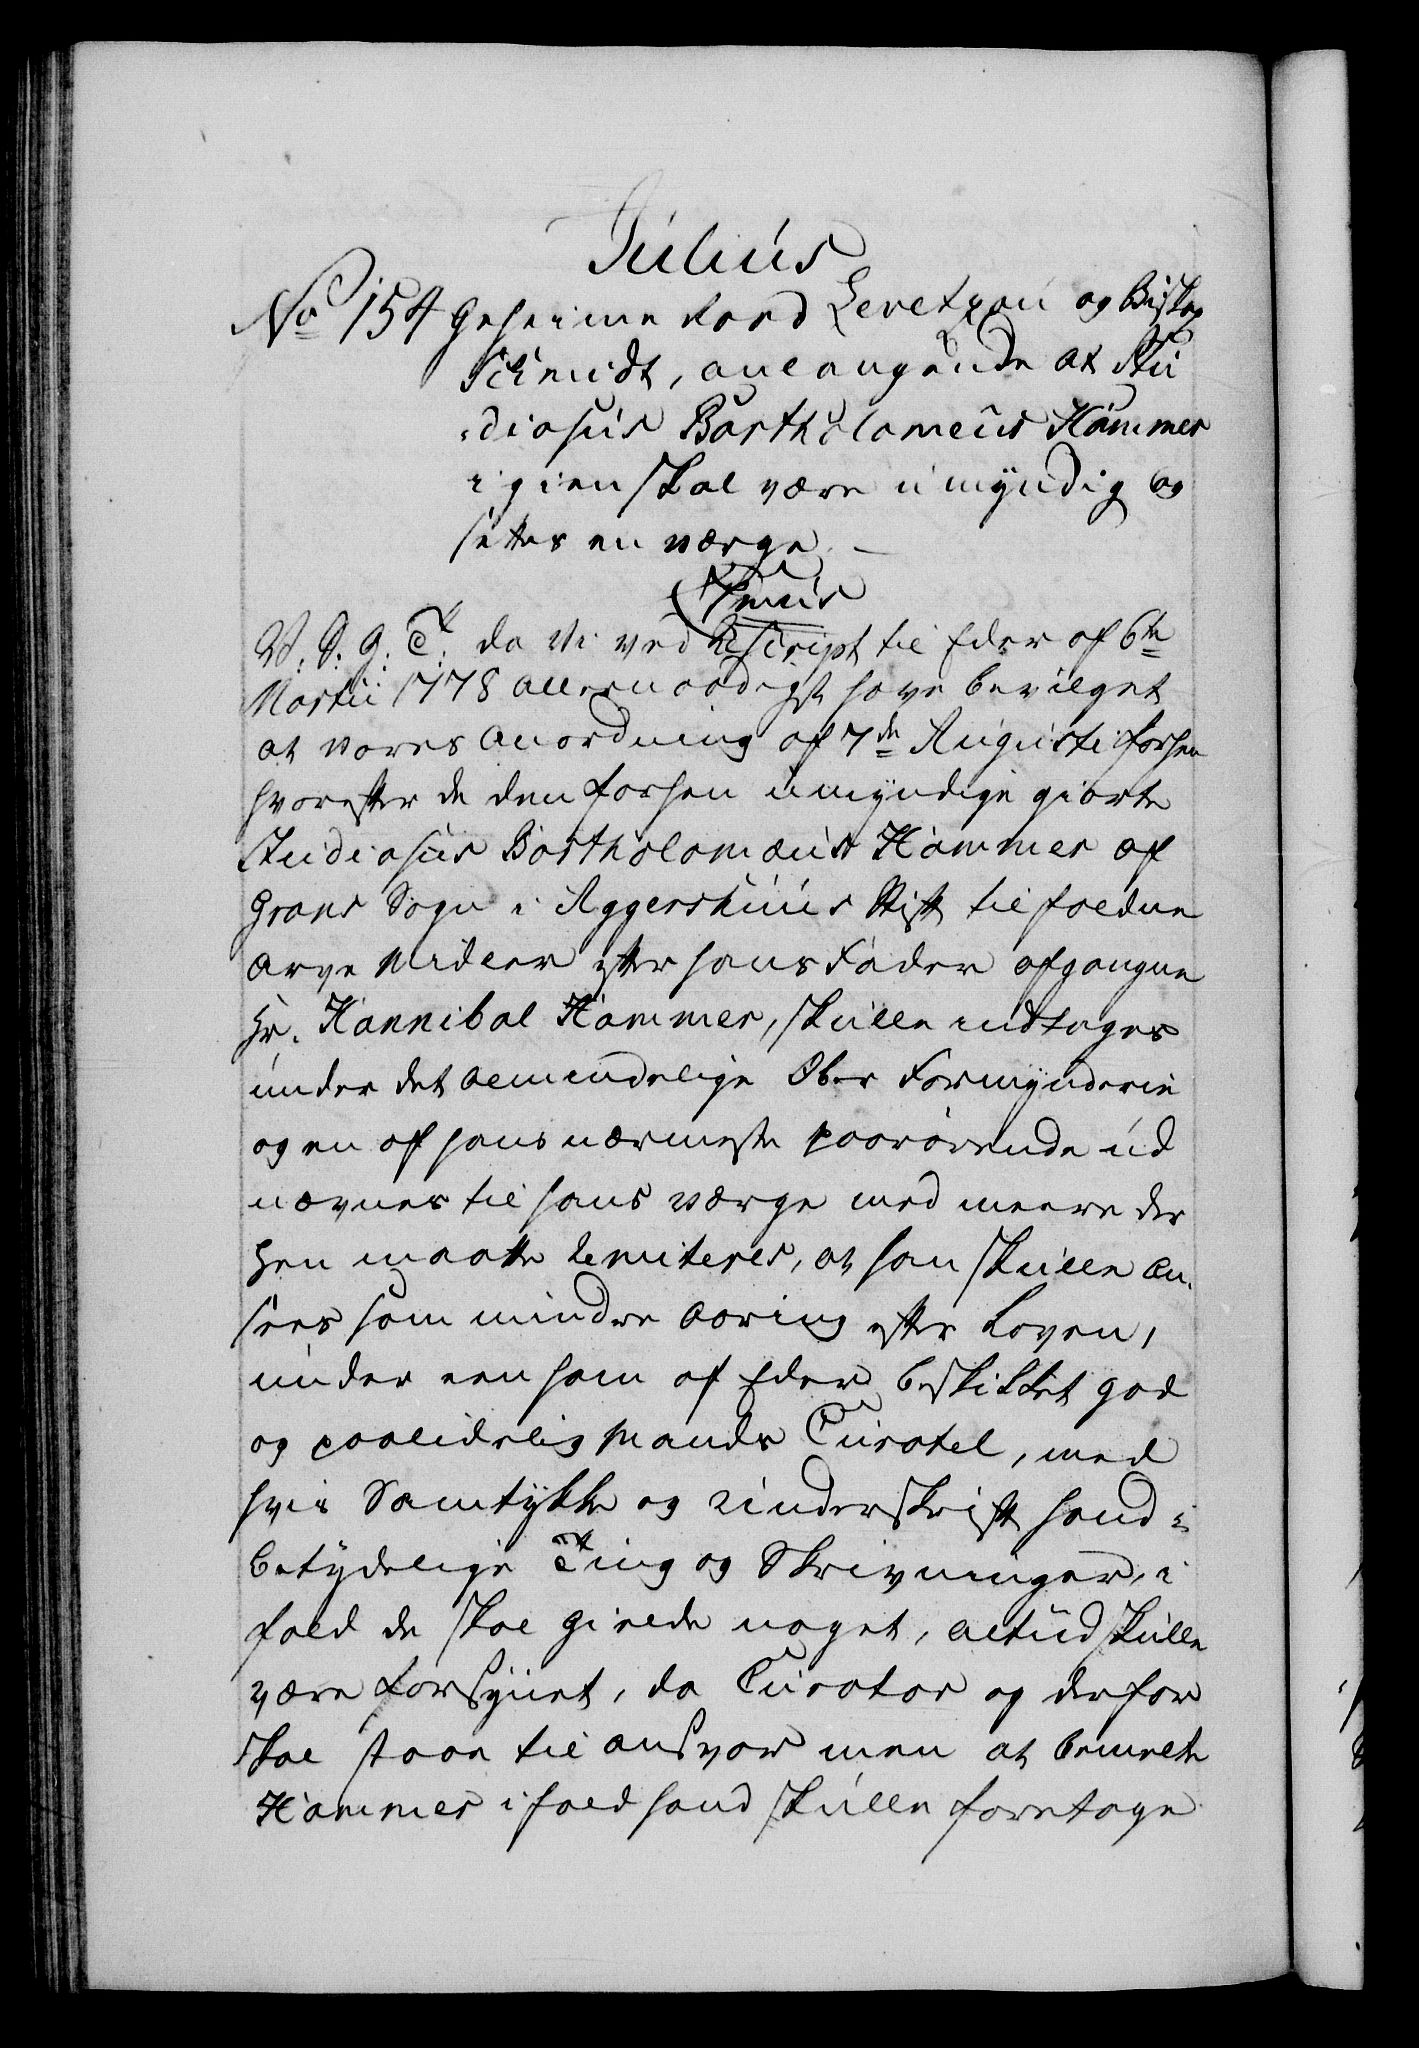 Julius
No 154 Geheime Raad Levetzau og Biskop
Schmidt, anlangende at Stu
diosus Bartholomeus Hammer
igien skal være umyndig og
settes en værge. —
Prmis
V. S. G. T. da Vi ved Rescript til Eder af 6te
Martii 1778 allernaadigst have bevilget
at vores Anordning af 7de Augusti forhen
hvorefter de den forhen umyndige giorte
Studiosus Bartholomæus Hammer af
Grans Sogn i Aggershuus Stift tilfaldne
Arve Midler efter hans Fader afgangne
Hr. Hannibal Hammer, skulle indtages
under det almindelige Ober Formynderie
og en af hans nærmeste paarørende ud
nævnes til hans værge med meere der
hen maatte limiteres, at han skulle an
sees som mindre aaring efter Loven,
under een ham af Eder beskikket god
og paalidelig Mands Curatel, med
hvis Samtykke og Underskrift hand i
betydelige Ting og Skrivninger, i
fald de skal gielde noget, altiid skulle
være forsynet, da Curator og derfor
skal staae til ansvar men at bemelte
Hammer ifald hand skulle foretage